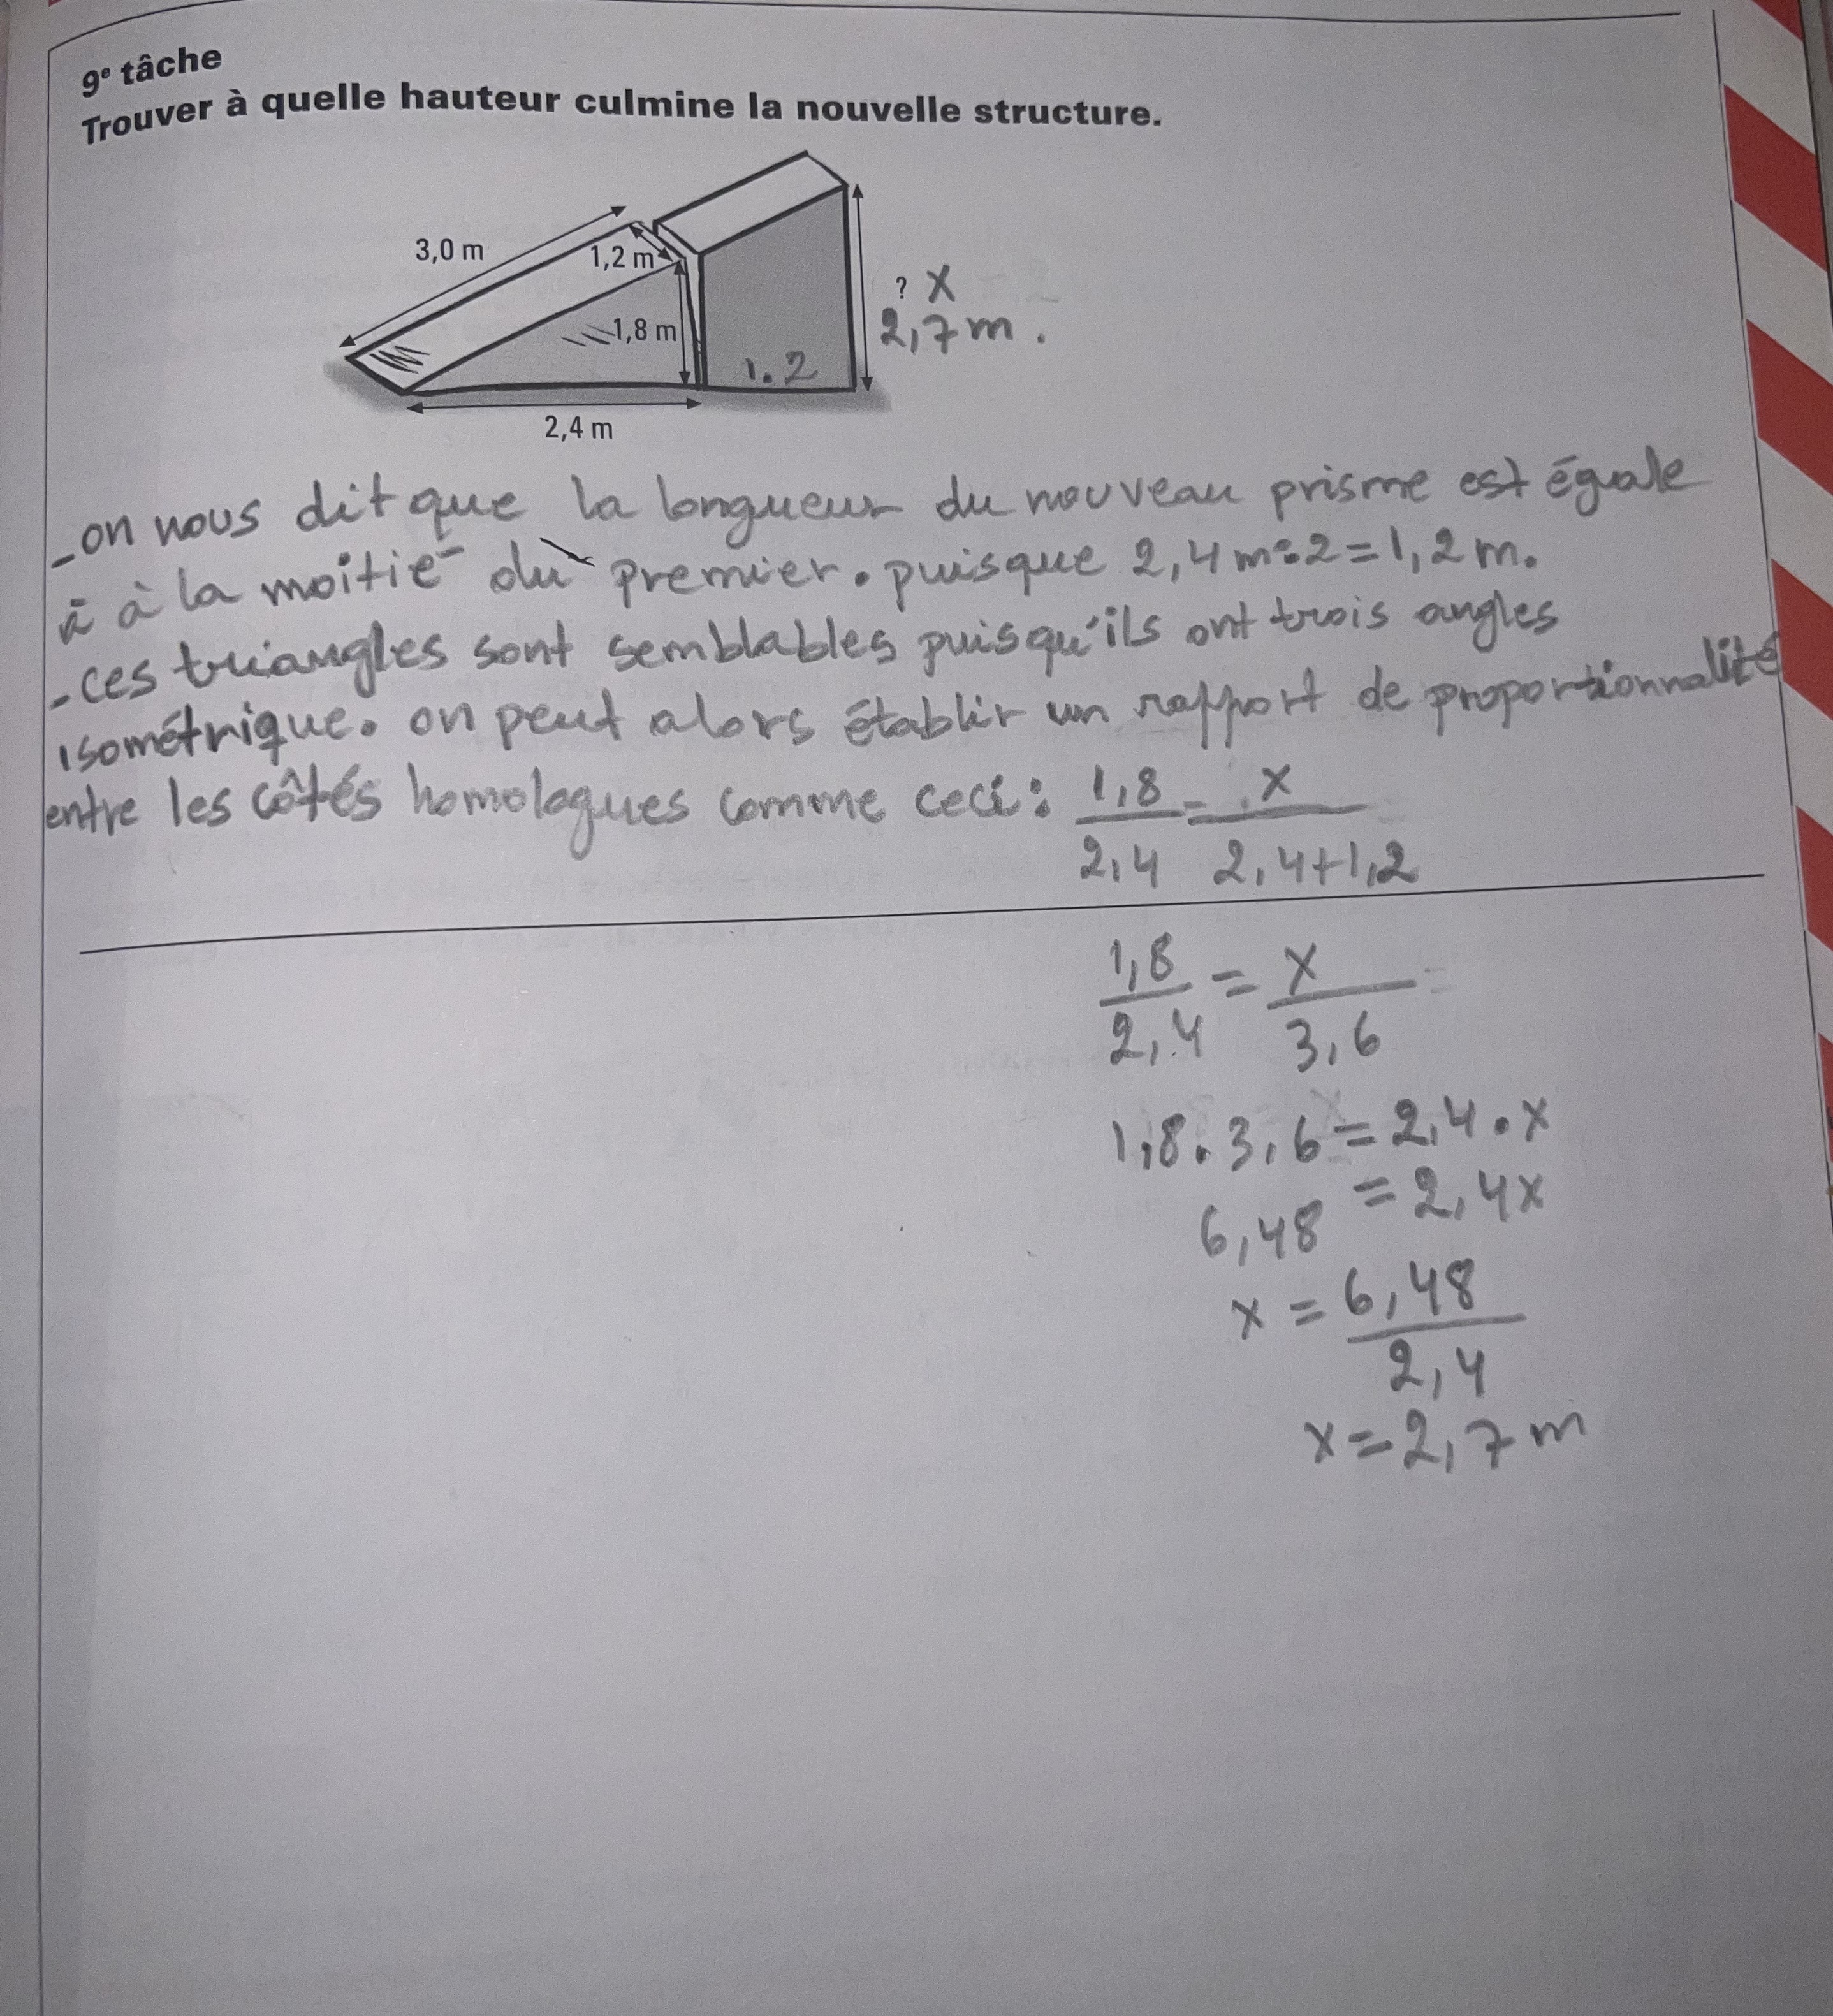 9e tâche
Trouver à quelle hauteur culmine la nouvelle structure.
3,0 m
1,2 m
? x
1,8 m
2,7 m.
1.2
2,4 m
- on nous dit que la longueur du nouveau prisme est égale
à à la moitié du premier. puisque 2,4 m÷2=1,2 m.
- ces triangles sont semblables puisqu'ils ont trois angles
isométrique. on peut alors établir un rapport de proportionnalité
entre les côtés homologues comme ceci : 1,8/2,4 = x/2,4+1,2
1,8/2,4 = x/3,6
1,8 . 3,6 = 2,4 . x
6,48 = 2,4x
x = 6,48/2,4
x = 2,7 m